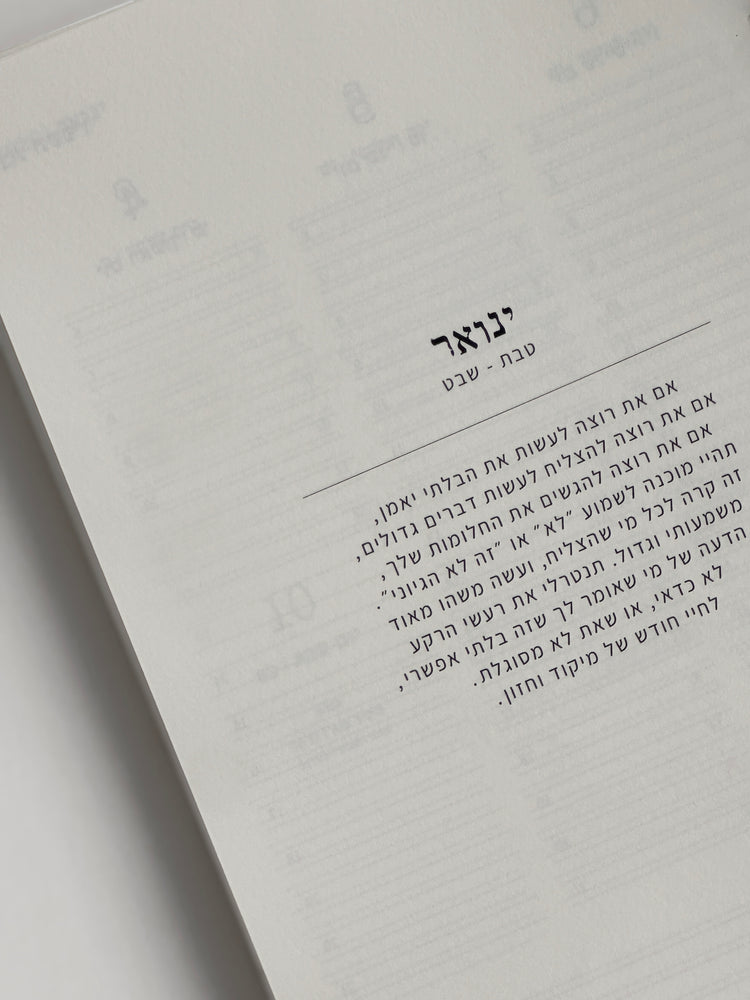 ינואר
טבת - שבט
אם את רוצה לעשות את הבלתי יאמן,
אם את רוצה להצליח לעשות דברים גדולים,
אם את רוצה להגשים את החלומות שלך,
תהיי מוכנה לשמוע ״לא״ או ״זה לא הגיוני״.
זה קרה לכל מי שהצליח, ועשה משהו מאוד
משמעותי וגדול. תנטרלי את רעשי הרקע
הדעה של מי שאומר לך שזה בלתי אפשרי,
לא כדאי, או שאת לא מסוגלת.
לחיי חודש של מיקוד וחזון.